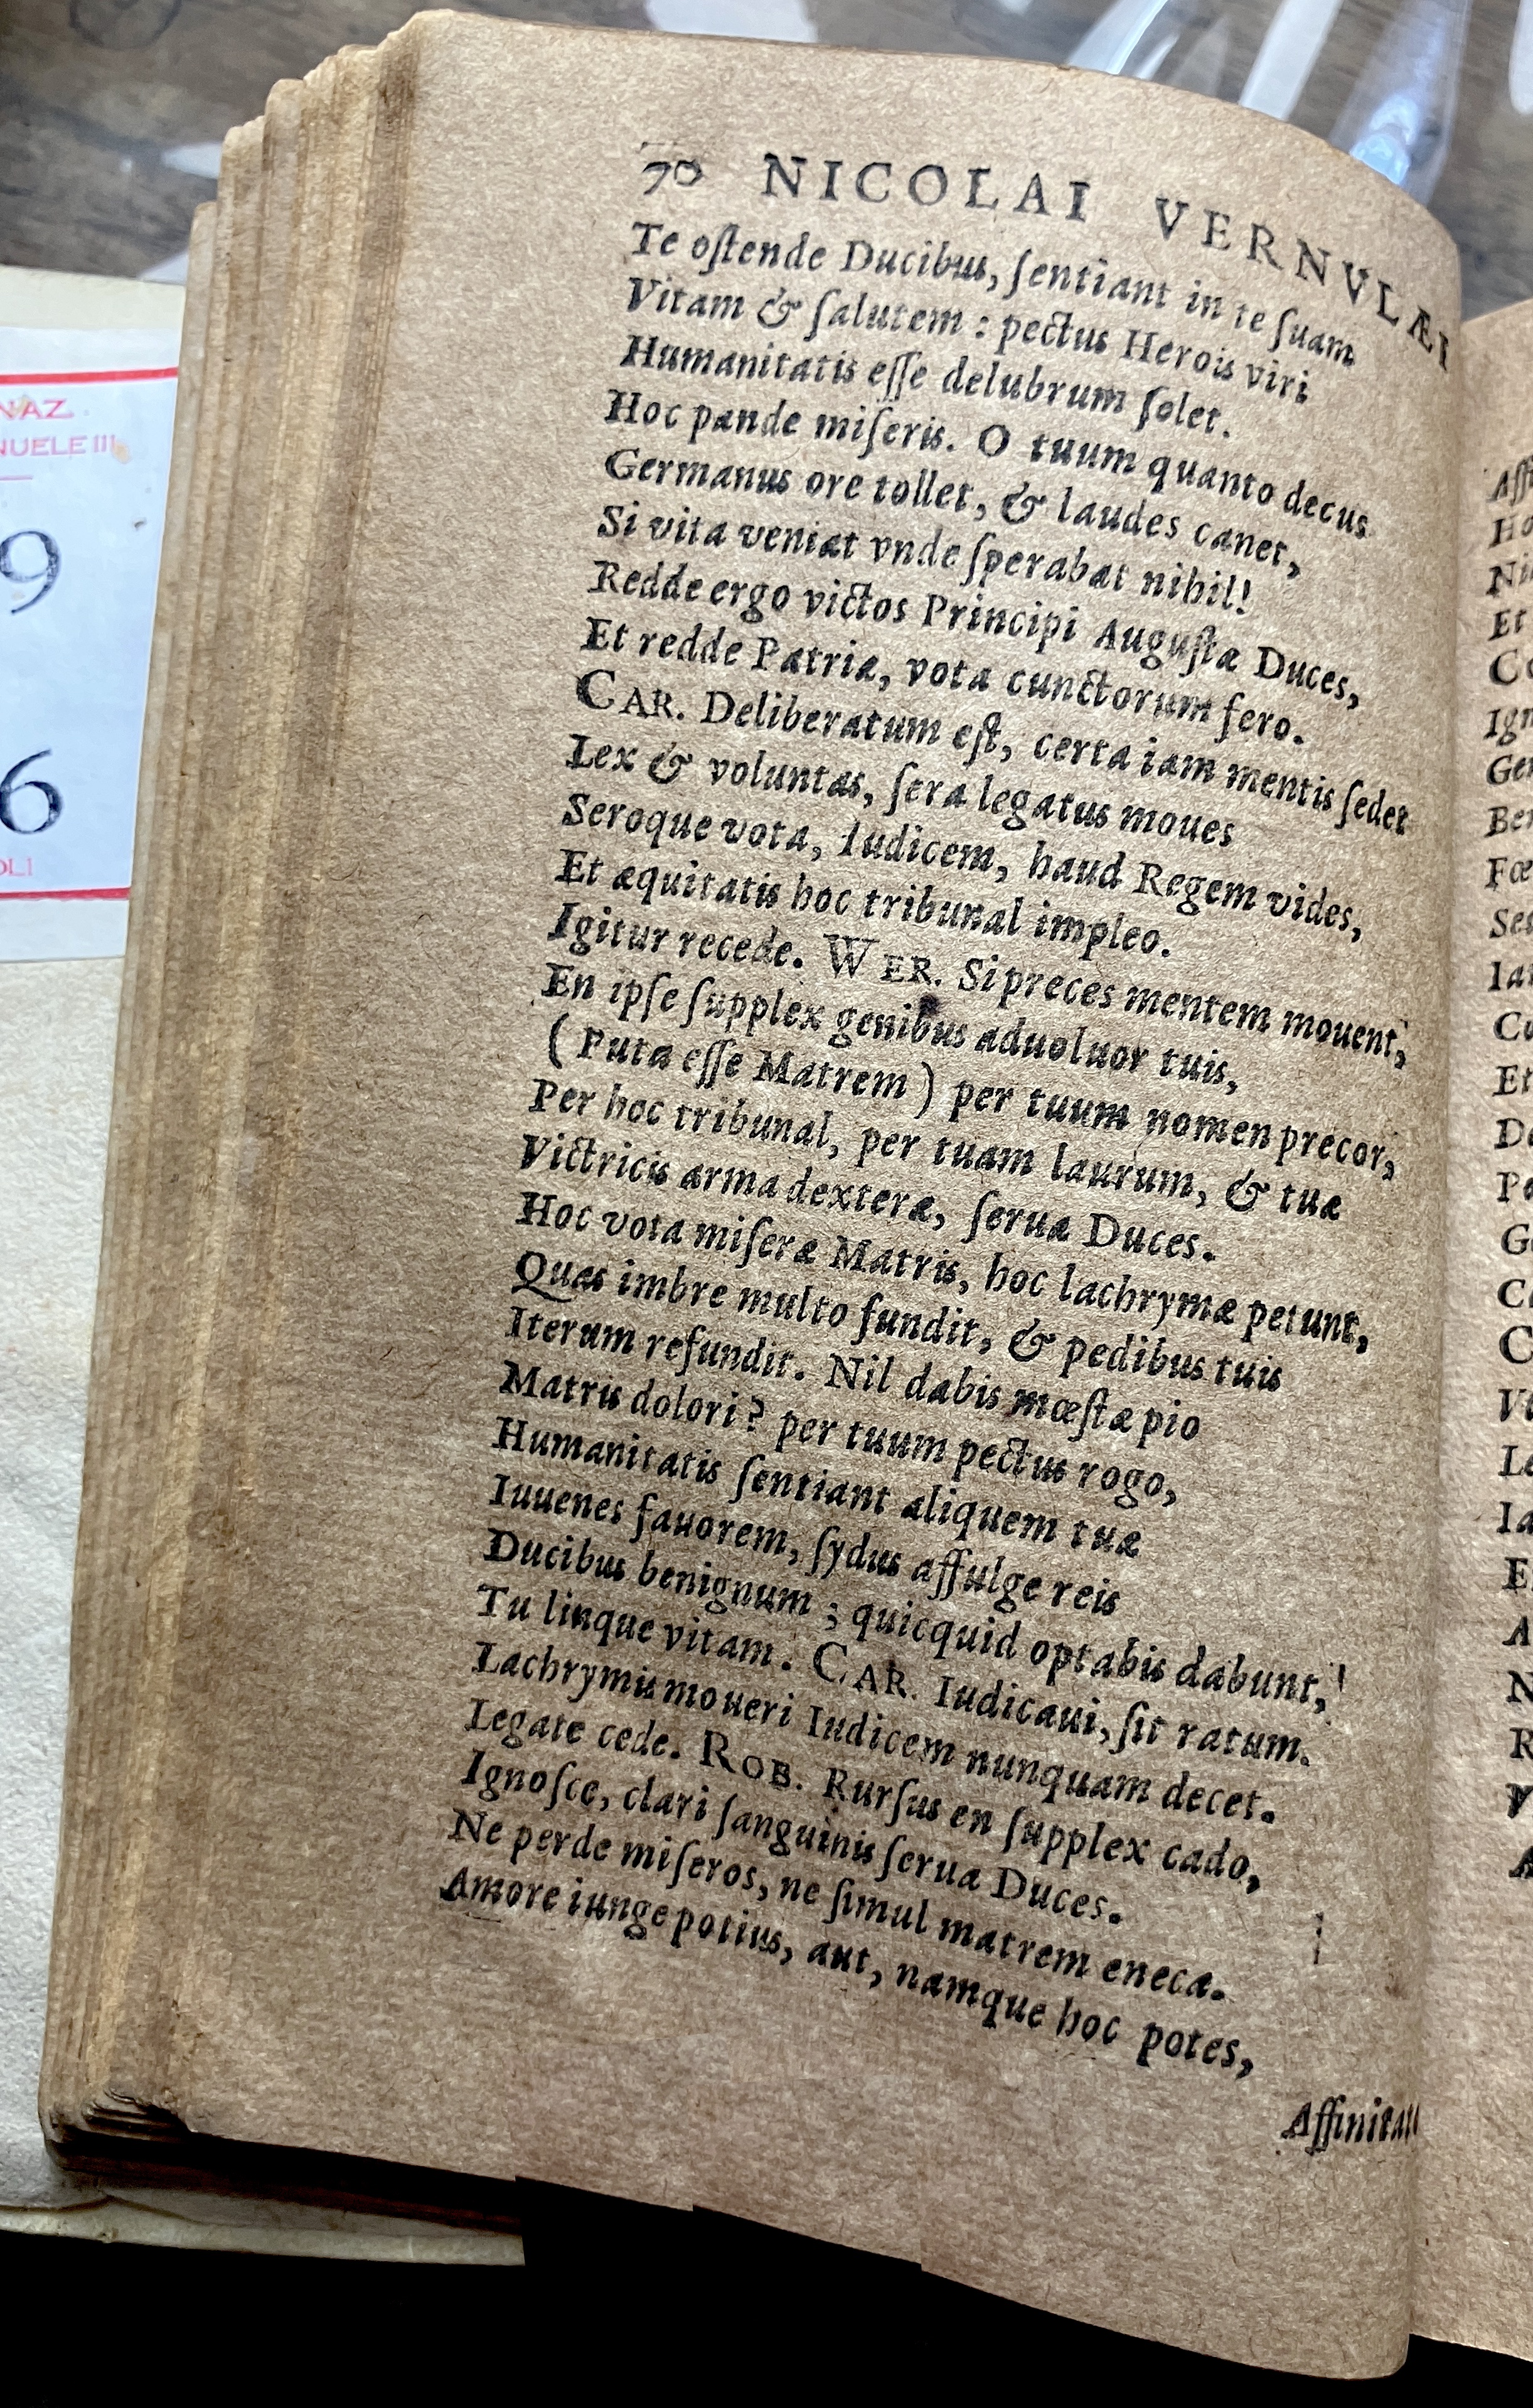 70 NICOLAI VERNVLÆI
Te oſtende Ducibus, ſentiant in te ſuam
Vitam & ſalutem : pectus Herois viri
Humanitatis eſſe delubrum ſolet.
Hoc pande miſeris. O tuum quanto decus
Germanus ore tollet, & laudes canet,
Si vita veniat vnde ſperabat nihil!
Redde ergo victos Principi Auguſtæ Duces,
Et redde Patriæ, vota cunctorum fero.
CAR. Deliberatum eſt, certa iam mentis ſedet
Lex & voluntas, ſera legatus moues
Seroque vota, Iudicem, haud Regem vides,
Et æquitatis hoc tribunal impleo.
Igitur recede. WER. Si preces mentem mouent,
En ipſe ſupplex genibus aduoluor tuis,
( Puta eſſe Matrem ) per tuum nomen precor,
Per hoc tribunal, per tuam laurum, & tuæ
Victricis arma dexteræ, ſerua Duces.
Hoc vota miſeræ Matris, hoc lachrymæ petunt,
Quas imbre multo fundit, & pedibus tuis
Iterum refundit. Nil dabis mœſtæ pio
Matris dolori? per tuum pectus rogo,
Humanitatis ſentiant aliquem tuæ
Iuuenes fauorem, ſydus affulge reis
Ducibus benignum ; quicquid optabis dabunt,
Tu linque vitam. CAR. Iudicaui, ſit ratum.
Lachrymis moueri Iudicem nunquam decet.
Legate cede. ROB. Rurſus en ſupplex cado,
Ignoſce, clari ſanguinis ſerua Duces.
Ne perde miſeros, ne ſimul matrem eneca.
Amore iunge potius, aut, namque hoc potes,
NAZ
NUELE III
9
6
OLI
Aſſ
Ho
Et
Ign
Ge
Ber
Fœ
Se
Ia
Cu
Et
D
P
G
C
C
V
L
I
E
A
N
R
V
A